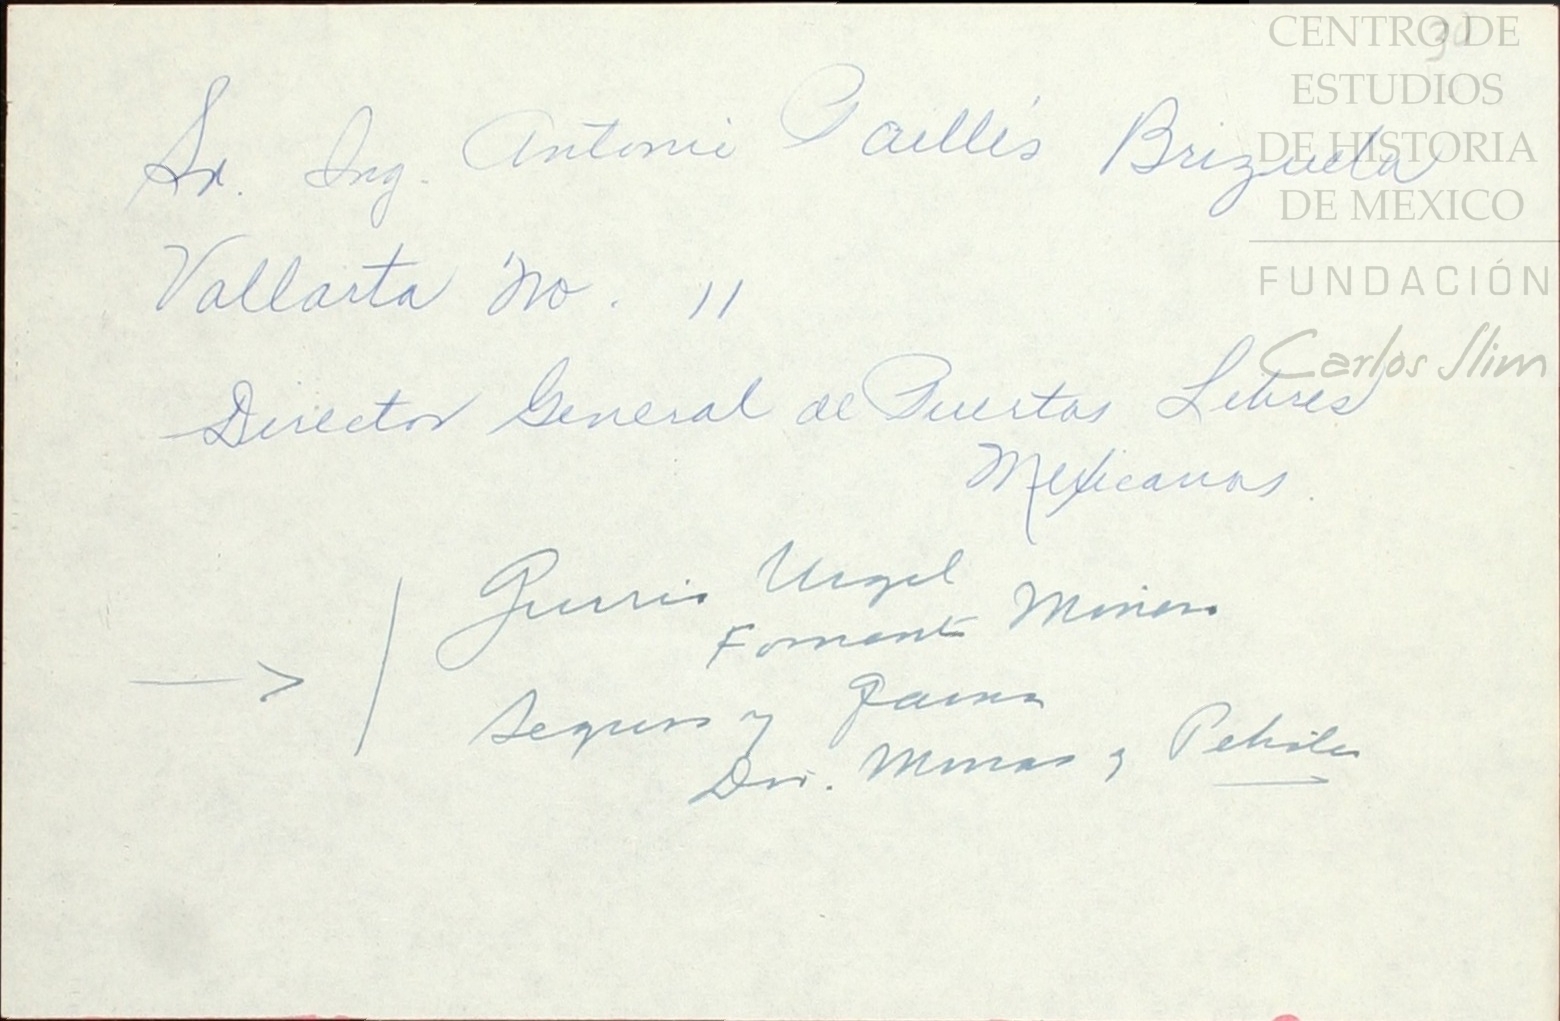 30
CENTRO DE
ESTUDIOS
DE HISTORIA
DE MEXICO
FUNDACIÓN
Carlos Slim
Sr. Ing. Antonio Paillés Brizuela
Vallarta No. 11
Director General de Puertos Libres
Mexicanos.
Urgel
Fomento Minero
Seguros y
Dir. Minas y